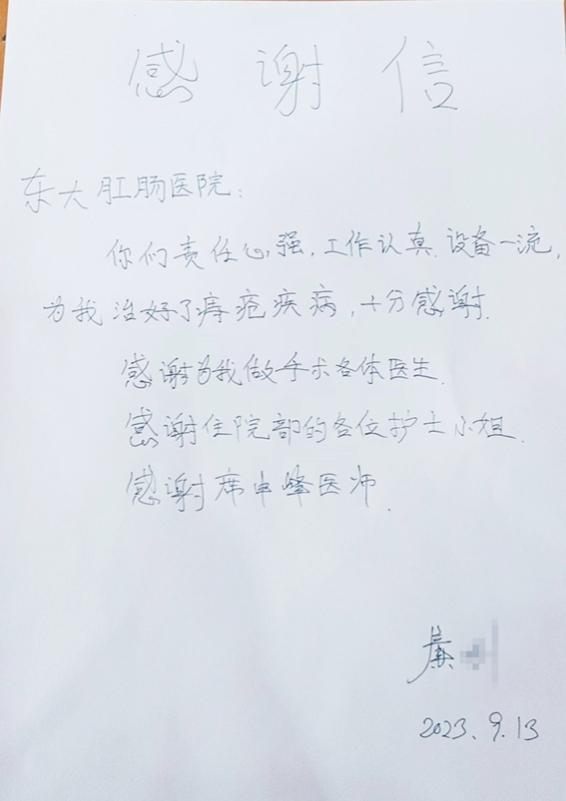 感谢信
东大肛肠医院:
你们责任心强,工作认真.设备一流,
为我治好了痔疮疾病,十分感谢.
感谢为我做手术各体医生.
感谢住院部的各位护士小姐.
感谢席申峰医师.
2023.9.13